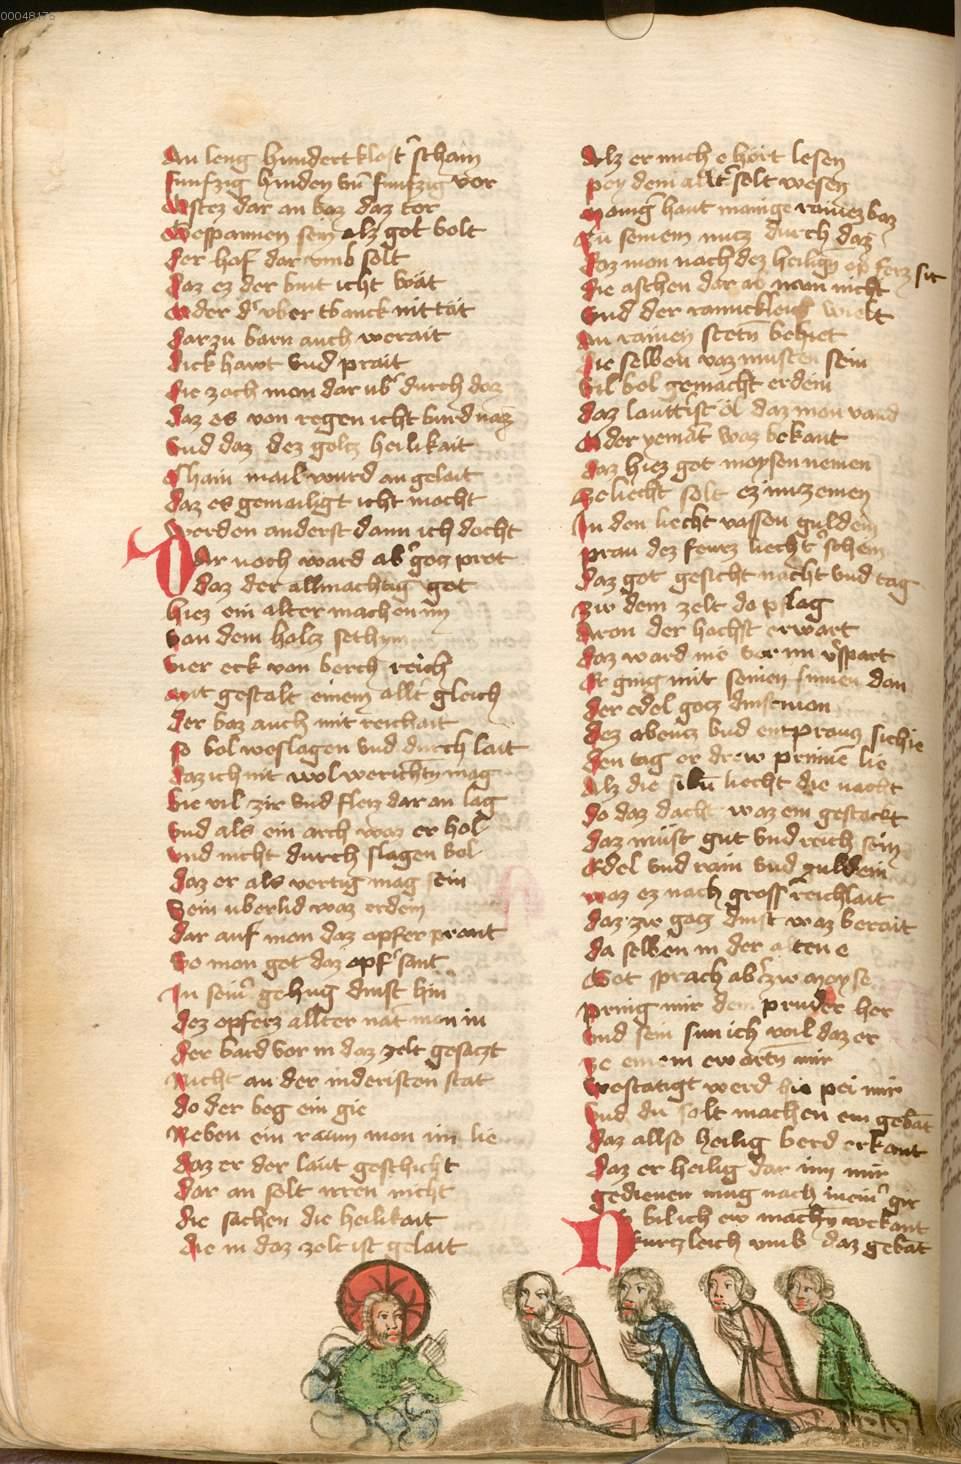 00048175
An leng hundert kloft' scham
funfzig hinden vn funfzig vor
Westez dar an baz daz tor
Gespannen sein alz got bolt
der hof dar vmb solt
daz ez der bint icht wät
Oder d' vber tbanck nit tät
dar zu barn auch werait
dick hawt vnd prait
die zoch mon dar ub' durch daz
daz es von regen icht burd naz
vnd daz dez goltz heilikait
chain mail wurd an gelait
daz es gemailigt icht mocht
werden anderst dann ich docht
Dar noch ward ab' gotz prot
daz der allmachtig got
hiez ein alter machen im
von dem holtz sethym
vier eck von berch reich
mit gestalt einem allt' gleich
der baz auch mit reichait
so bol weslagen vnd durch lait
daz ich nit wol werichtn mag
bie vil zir vnd fleiz dar an lag
vnd als ein arch waz er hol
vnd nicht durch slagen bol
daz er als vertig mag sein
Sein uberlid waz erdein
dar auf mon daz opfer prant
bo mon got daz opf' sant
In sein' gehug dinst hin
dez opferz allter nat mon in
der bard vor in daz zelt gesaczt
Nicht an der inderisten stat
do der beg ein gie
Neben ein raum mon im lie
daz er der läut geschicht
dar an solt irren nicht
die sachen die heilikait
die in daz zelt ist gelait
Alz er mich e hört lesen
pey dem allt' solt wesen
Manig haut manige rainez baz
zu seinem nutz durch daz
daz mon noch dez heilign opferz sit
die aschen dar ab nem nicht
vnd der rainickleich wielt
An rainen stetn behiet
die selben vaz musten sein
vil bol gemacht erdein
daz lauttist öl daz mon vand
Oder yemät waz bekant
daz hiez got moysen nemen
Ze liecht solt ez im zemen
In den liecht vassen guldein
prau dez feurz liecht' schein
daz got gesicht nacht vnd tag
zw dem zelt do pflag
Aron der hochst erwart
daz ward nie vor im v'spart
Er ging mit seinen sunen dan
der edel gotz dinstmon
dez abencz vnd entprang sichie
den tag er drew prinnē lie
Alz die sibn liecht die nacht
do daz dacht waz ein gestackt
daz müst gut vnd reich sein
Edel vnd rain vnd guldein
waz ez nach gross' reichlait
daz zw gotz dinst waz berait
da selben in der alten e
Got sprach ab' zw Moyse
pring mir den pruder her
vnd sein sun ich wil daz er
ze einem ewartn mir
westatigt werd hie pei mir
vnd du solt machen ein gebāt
daz allso heilig berd erkant
daz er heilig dar inn mir
gedienen mug nach meim' gir
Nv bil ich ew machn wekant
kurtzleich vmb daz gebāt